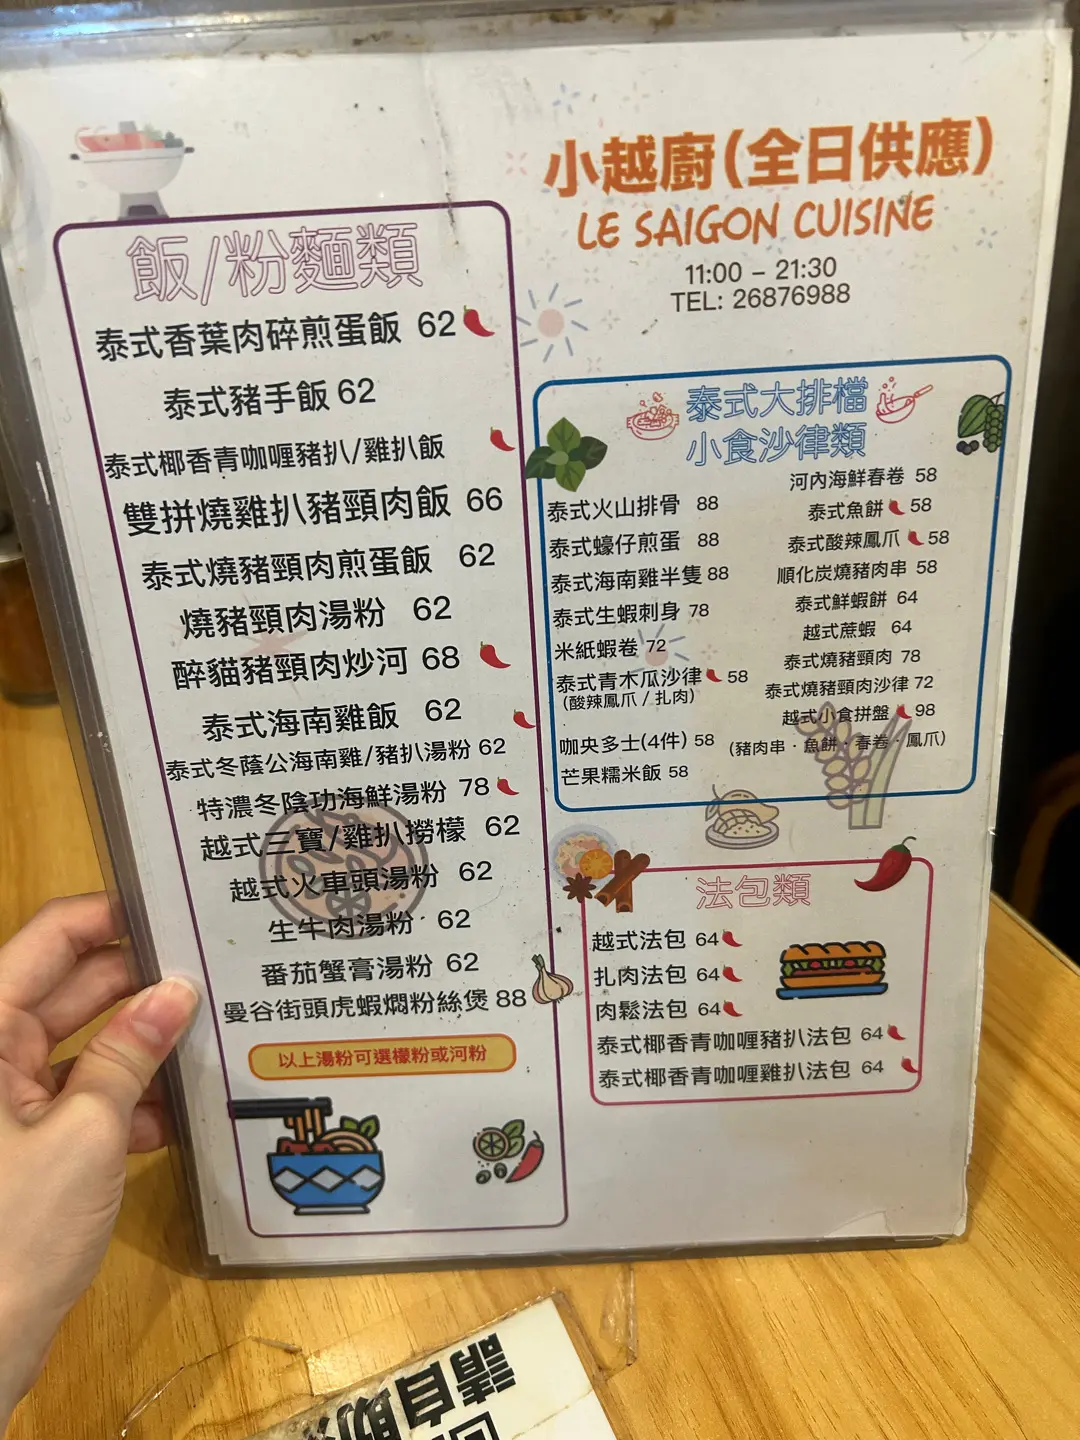 小越廚(全日供應)
LE SAIGON CUISINE
11:00 – 21:30
TEL: 26876988
飯/粉麵類
泰式香葉肉碎煎蛋飯 62
泰式豬手飯 62
泰式椰香青咖喱豬扒/雞扒飯
雙拼燒雞扒豬頸肉飯 66
泰式燒豬頸肉煎蛋飯 62
燒豬頸肉湯粉 62
醉貓豬頸肉炒河 68
泰式海南雞飯 62
泰式冬蔭公海南雞/豬扒湯粉 62
特濃冬陰功海鮮湯粉 78
越式三寶/雞扒撈檬 62
越式火車頭湯粉 62
生牛肉湯粉 62
番茄蟹膏湯粉 62
曼谷街頭虎蝦燜粉絲煲 88
以上湯粉可選檬粉或河粉
泰式大排檔
小食沙律類
泰式火山排骨 88
泰式蠔仔煎蛋 88
泰式海南雞半隻 88
泰式生蝦刺身 78
米紙蝦卷 72
泰式青木瓜沙律 58
(酸辣鳳爪 / 扎肉)
咖央多士(4件) 58
芒果糯米飯 58
河內海鮮春卷 58
泰式魚餅 58
泰式酸辣鳳爪 58
順化炭燒豬肉串 58
泰式鮮蝦餅 64
越式蔗蝦 64
泰式燒豬頸肉 78
泰式燒豬頸肉沙律 72
越式小食拼盤 98
(豬肉串·魚餅·春卷·鳳爪)
法包類
越式法包 64
扎肉法包 64
肉鬆法包 64
泰式椰香青咖喱豬扒法包 64
泰式椰香青咖喱雞扒法包 64
請自助